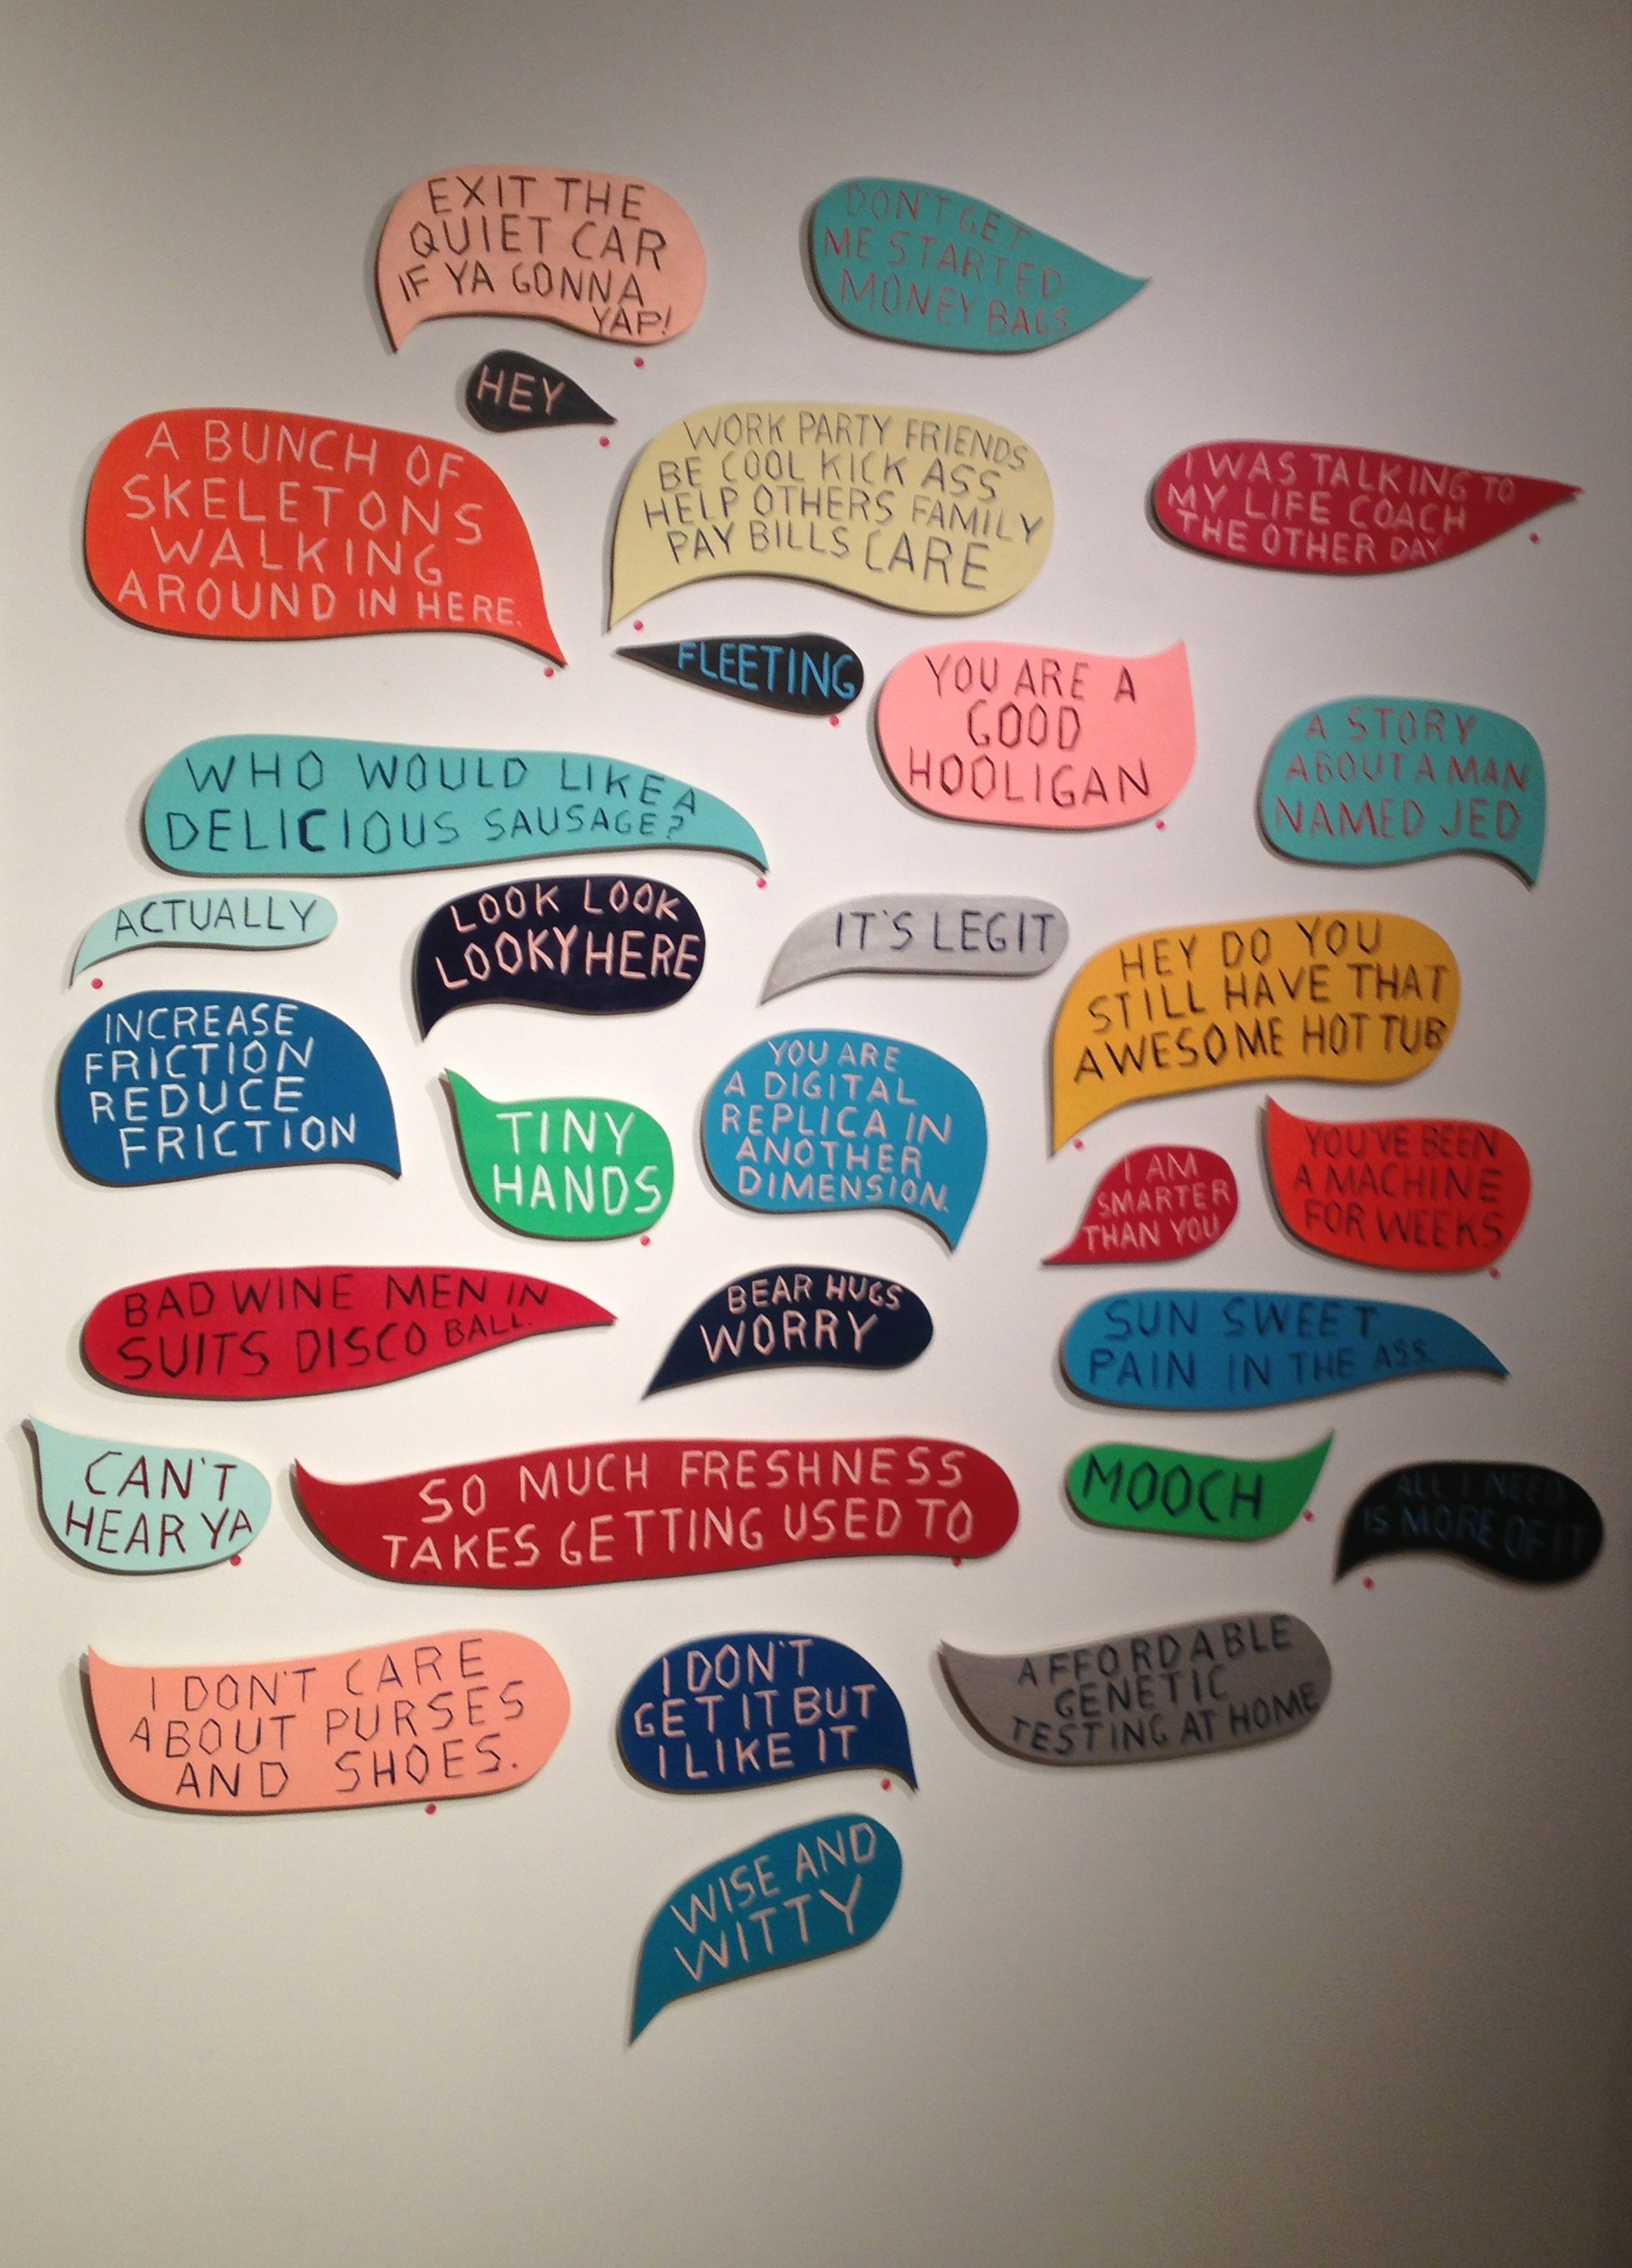 EXIT THE
QUIET CAR
IF YA GONNA
YAP!
DON'T GET
ME STARTED
MONEY BAGS
HEY
A BUNCH OF
SKELETONS
WALKING
AROUND IN HERE.
WORK PARTY FRIENDS
BE COOL KICK ASS
HELP OTHERS FAMILY
PAY BILLS CARE
I WAS TALKING TO
MY LIFE COACH
THE OTHER DAY
FLEETING
YOU ARE A
GOOD
HOOLIGAN
A STORY
ABOUT A MAN
NAMED JED
WHO WOULD LIKE A
DELICIOUS SAUSAGE?
ACTUALLY
LOOK LOOK
LOOKY HERE
IT'S LEGIT
HEY DO YOU
STILL HAVE THAT
AWESOME HOT TUB
INCREASE
FRICTION
REDUCE
FRICTION
TINY
HANDS
YOU ARE
A DIGITAL
REPLICA IN
ANOTHER
DIMENSION.
I AM
SMARTER
THAN YOU
YOU'VE BEEN
A MACHINE
FOR WEEKS
BAD WINE MEN IN
SUITS DISCO BALL.
BEAR HUGS
WORRY
SUN SWEET
PAIN IN THE ASS.
CAN'T
HEAR YA
SO MUCH FRESHNESS
TAKES GETTING USED TO
MOOCH
ALL I NEED
IS MORE OF IT
I DON'T CARE
ABOUT PURSES
AND SHOES.
I DON'T
GET IT BUT
I LIKE IT
AFFORDABLE
GENETIC
TESTING AT HOME
WISE AND
WITTY